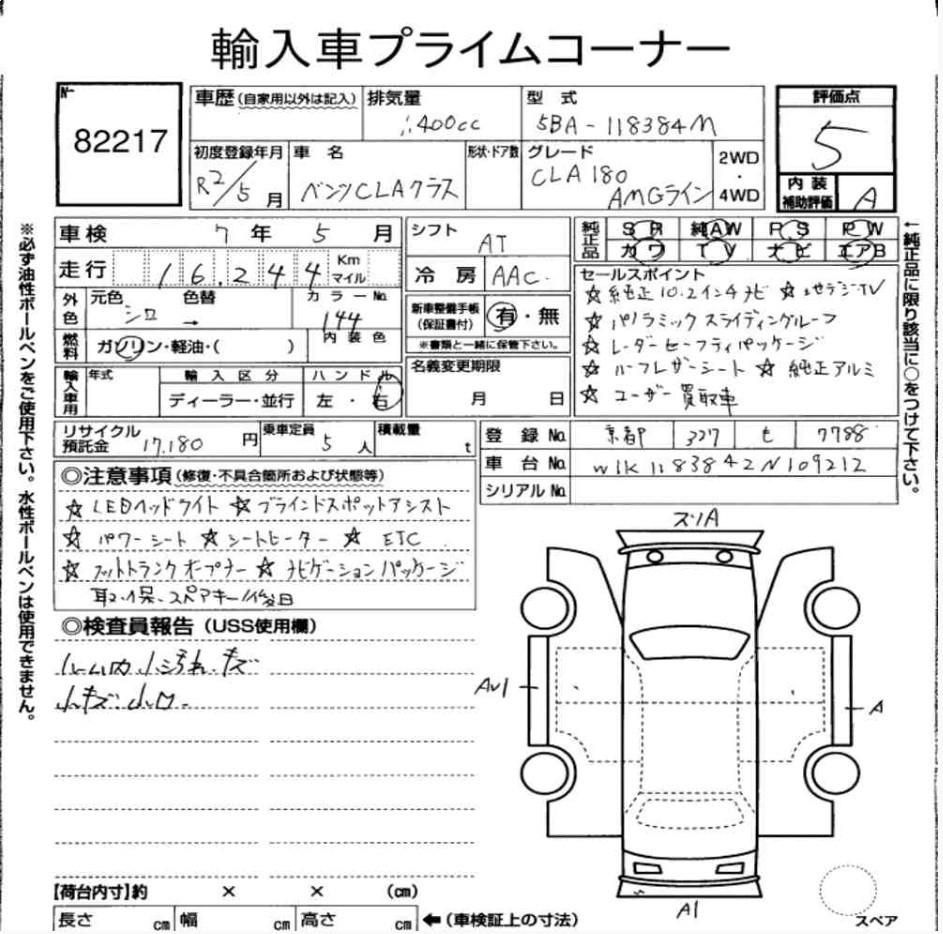 輸入車プライムコーナー
No
82217
車歴 (自家用以外は記入)
排気量
1400cc
型式
5BA-118384M
評価点
5
初度登録年月
R2/5月
車名
ベンツCLAクラス
形状・ドア数
グレード
CLA180
AMGライン
2WD
・
4WD
内装
補助評価
A
車検 7年 5月
走行 16,244 Km マイル
外色
元色 シロ
色替 →
カラーNo. 144
燃料 ガソリン・軽油・( )
内装色
輸入車用
年式
輸入区分
ディーラー・並行
ハンドル
左・右
シフト AT
冷房 AAC
新車整備手帳
(保証書付)
有・無
※書類と一緒に保管下さい。
名義変更期限
月 日
純正品
SR 純AW PS PW
カワ TV ナビ エアB
セールスポイント
☆純正10.2インチナビ ☆地デジTV
☆パノラミックスライディングルーフ
☆レーダーセーフティパッケージ
☆ハーフレザーシート ☆純正アルミ
☆ユーザー買取車
リサイクル
預託金 17,180円
乗車定員 5人
積載量 t
登録No. 京都 327 も 7788
車台No. W1K1183842N109212
シリアルNo.
◎注意事項 (修復・不具合箇所および状態等)
☆LEDヘッドライト ☆ブラインドスポットアシスト
☆パワーシート ☆シートヒーター ☆ETC
☆フットトランクオープナー ☆ナビゲーションパッケージ
取・保・スペアキー後日
◎検査員報告 (USS使用欄)
ルーム内小汚れ、キズ
小キズ、小凹
ズリA
AU1
A
A1
スペア
【荷台内寸】約 × × (cm)
長さ cm 幅 cm 高さ cm ←(車検証上の寸法)
※必ず油性ボールペンをご使用下さい。水性ボールペンは使用できません。
←純正品に限り該当に○をつけて下さい。